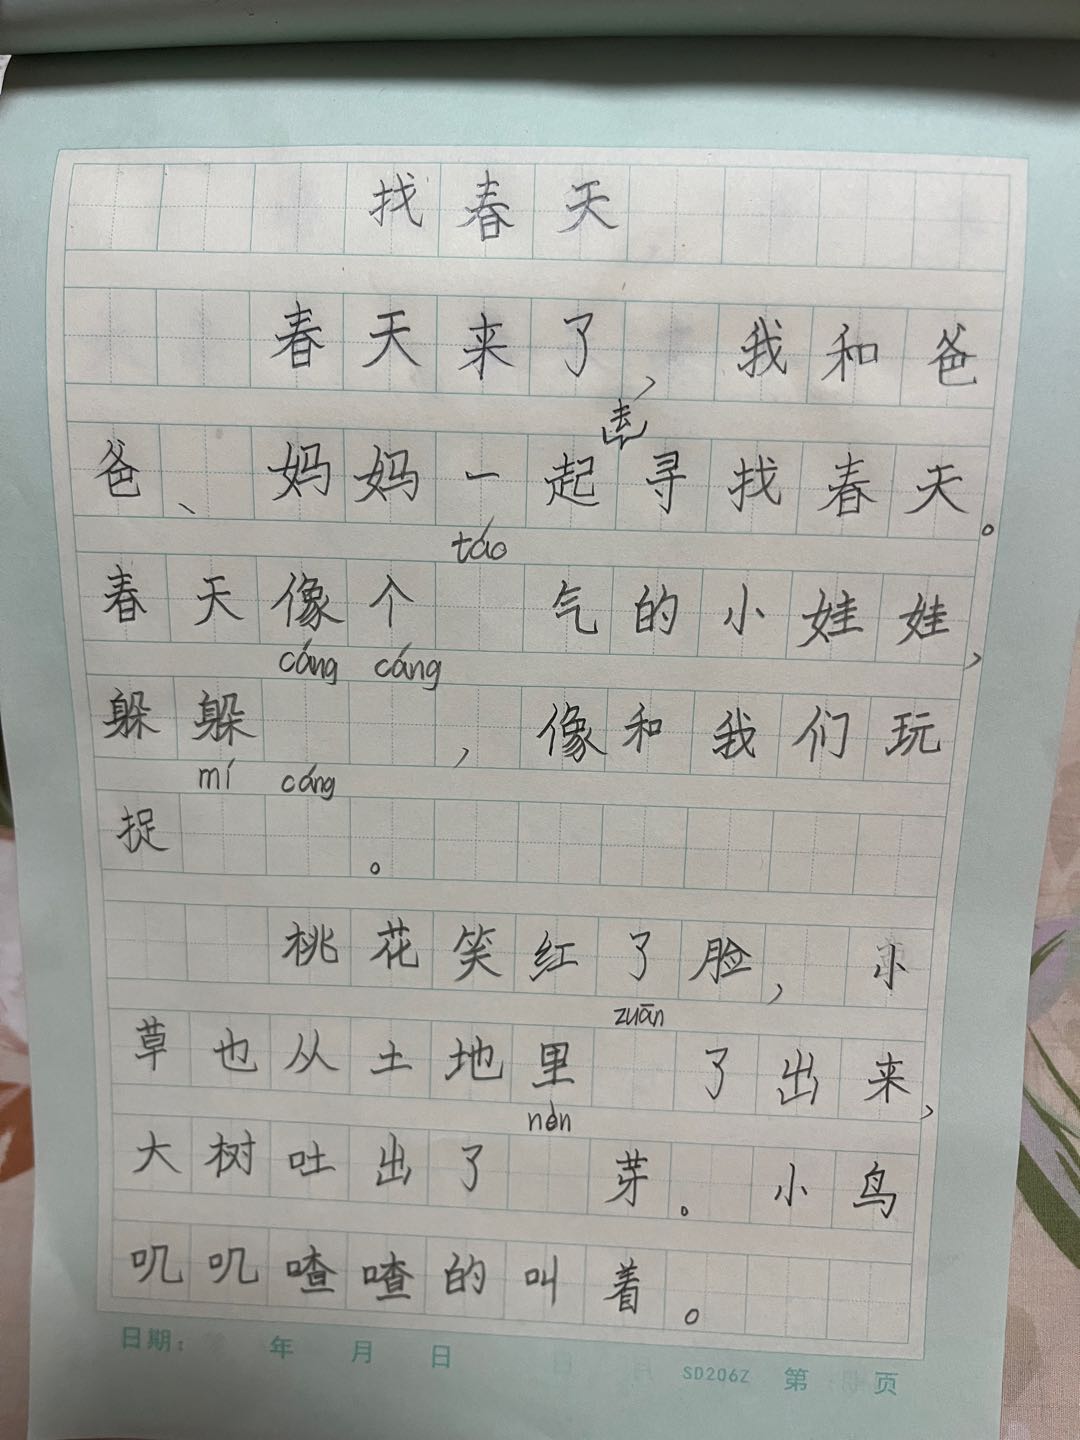 找春天
春天来了，我和爸
去
爸、妈妈一起寻找春天。
táo
春天像个气的小娃娃，
cáng cáng
躲躲，像和我们玩
mí cáng
捉。
桃花笑红了脸，小
zuān
草也从土地里了出来，
nèn
大树吐出了芽。小鸟
叽叽喳喳的叫着。
日期： 年 月 日 SD206Z 第 页